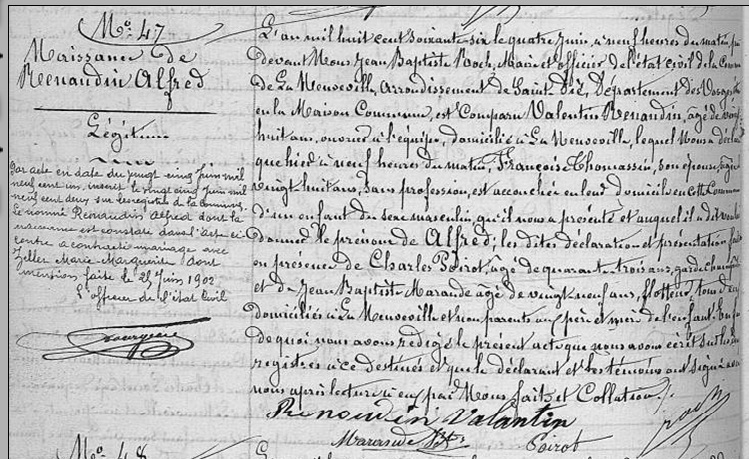 No. 47
Naissance de
Renaudin Alfred
Légitime
Par acte en date du vingt cinq Juin mil
neuf cent un, inscrit le vingt cinq Juin mil
neuf cent deux sur les registres de la commune,
le nommé Renaudin Alfred dont la
naissance est constatée dans l'acte ci
contre a contracté mariage avec
Zeller Marie Marguerite dont
mention faite le 25 Juin 1902
L'officier de l'état civil
L'an mil huit cent soixante six le quatre Juin, à neuf heures du matin, par
devant Nous Jean Baptiste Maire et officier de l'état civil de la Commune
de La Neuveville, arrondissement de Saint-Dié, Département des Vosges
en la Maison Commune, est Comparu Valentin Renaudin, âgé de vingt
huit ans, ouvrier à domicilié à La Neuveville, lequel Nous a déclaré
que hier à neuf heures du matin, Françoise Thomassin, son épouse, âgée
vingt huit ans, sans profession, est accouchée en leur domicile en cette Commune
d'un enfant du sexe masculin, qu'il nous a présenté et auquel il a déclaré
donner le prénom de Alfred; les dites déclaration et présentation faites
en présence de Charles Poirot, âgé de quarante trois ans, garde champêtre
et de Jean Baptiste Marande âgé de vingt neuf ans, flotteur, tous deux
domiciliés à La Neuveville et non parents aux père et mère de l'enfant. En foi
de quoi nous avons rédigé le présent acte que nous avons écrit sur les deux
registres à ce destinés et que le déclarant et les témoins ont signé avec
nous après lecture à eux par Nous faite et Collation.
Renaudin Valantin
Marande Bte Poirot
No. 48